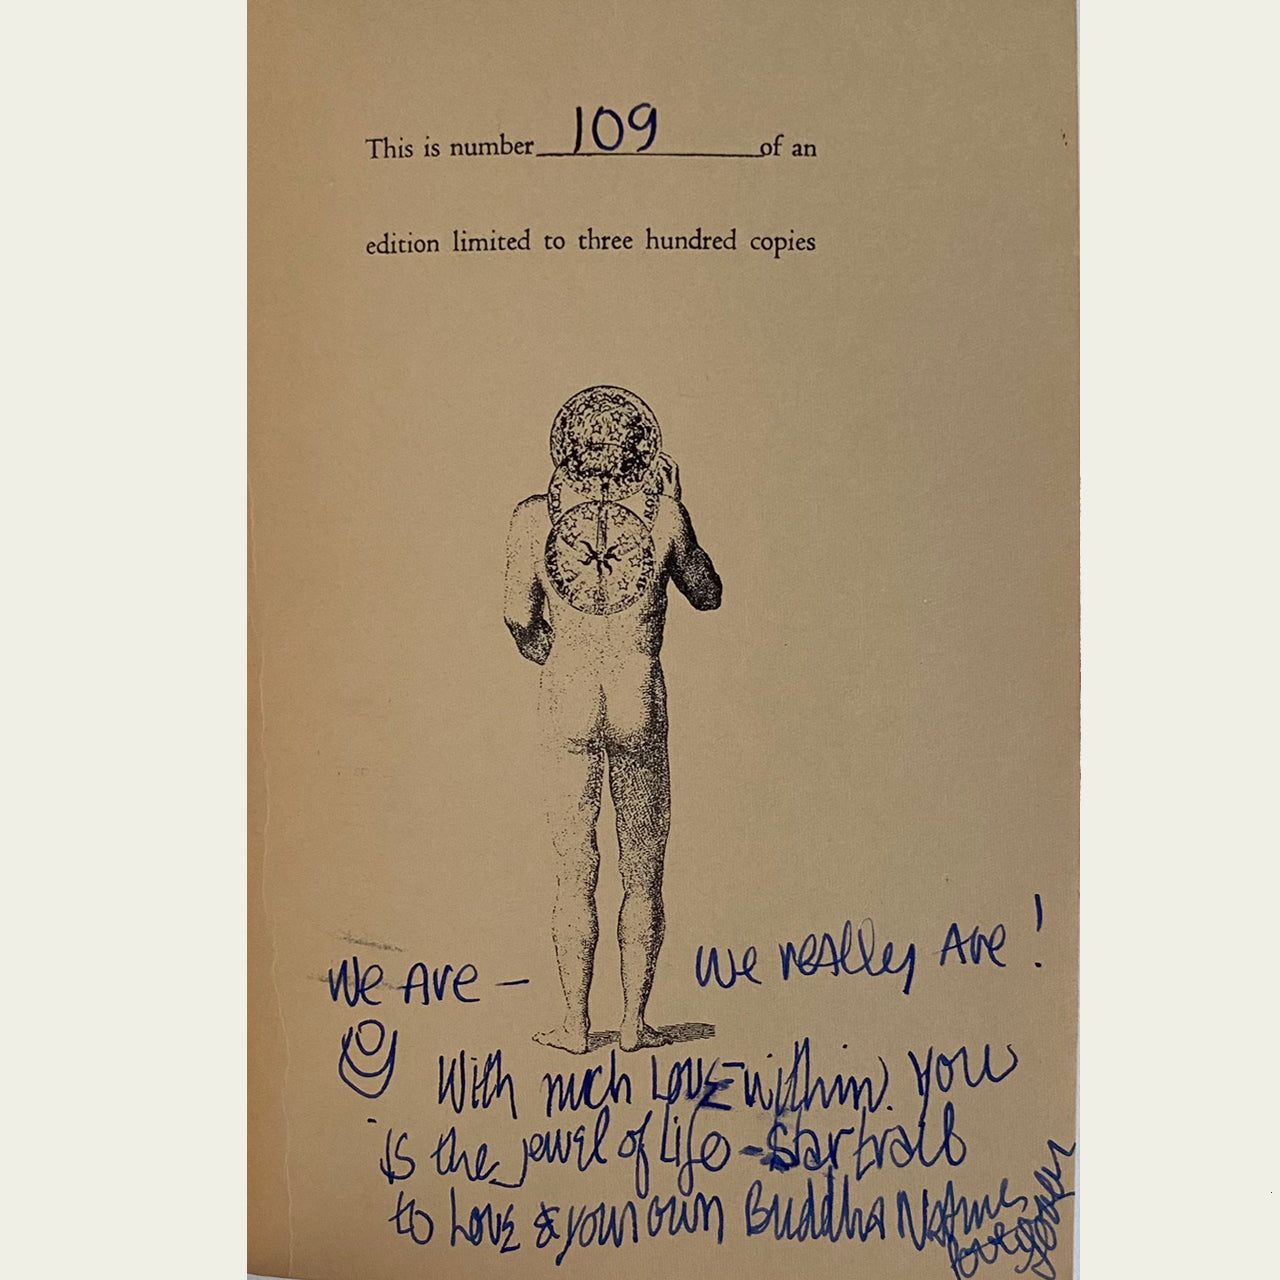 This is number 109 of an
edition limited to three hundred copies
We Are — We really Are!
With much Love - within. you
is the jewel of life -
to Love & your own Buddha